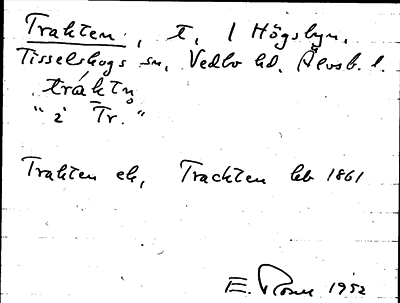 Trakten, t. 1 Högsbyn,
Tisselskogs sn, Vedbo hd. Älvsb. l.
tráktn̥
"i Tr."
Trakten ek, Trachten hb 1861
E. 1952